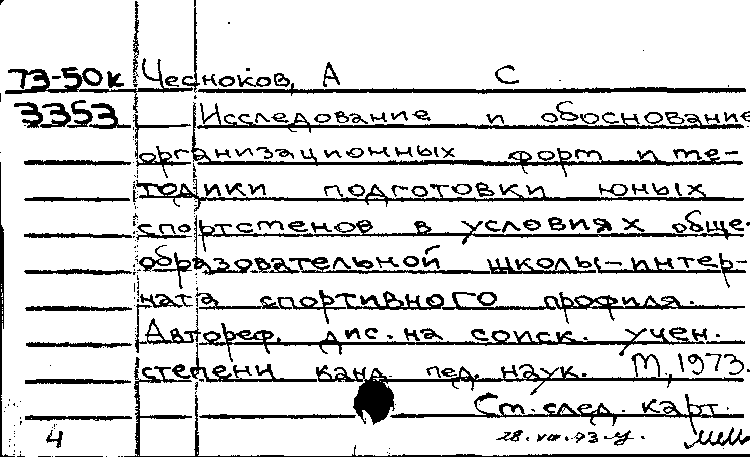 73-50к Чесноков, А С
3353 Исследование и обоснование
организационных форм и ме-
тодики подготовки юных
спортсменов в условиях обще-
образовательной школы-интер-
ната спортивного профиля.
Автореф. дис. на соиск. учен.
степени канд. пед. наук. М, 1973.
См. след. карт.
4